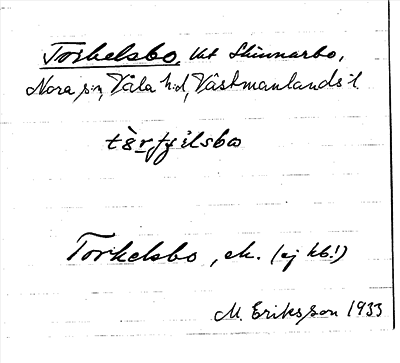 Torkelsbo, ut Skinnarbo,
Nora sn, Våla hd, Västmanlands l
Torkelsbo, ek. (ej kb!)
M. Eriksson 1933